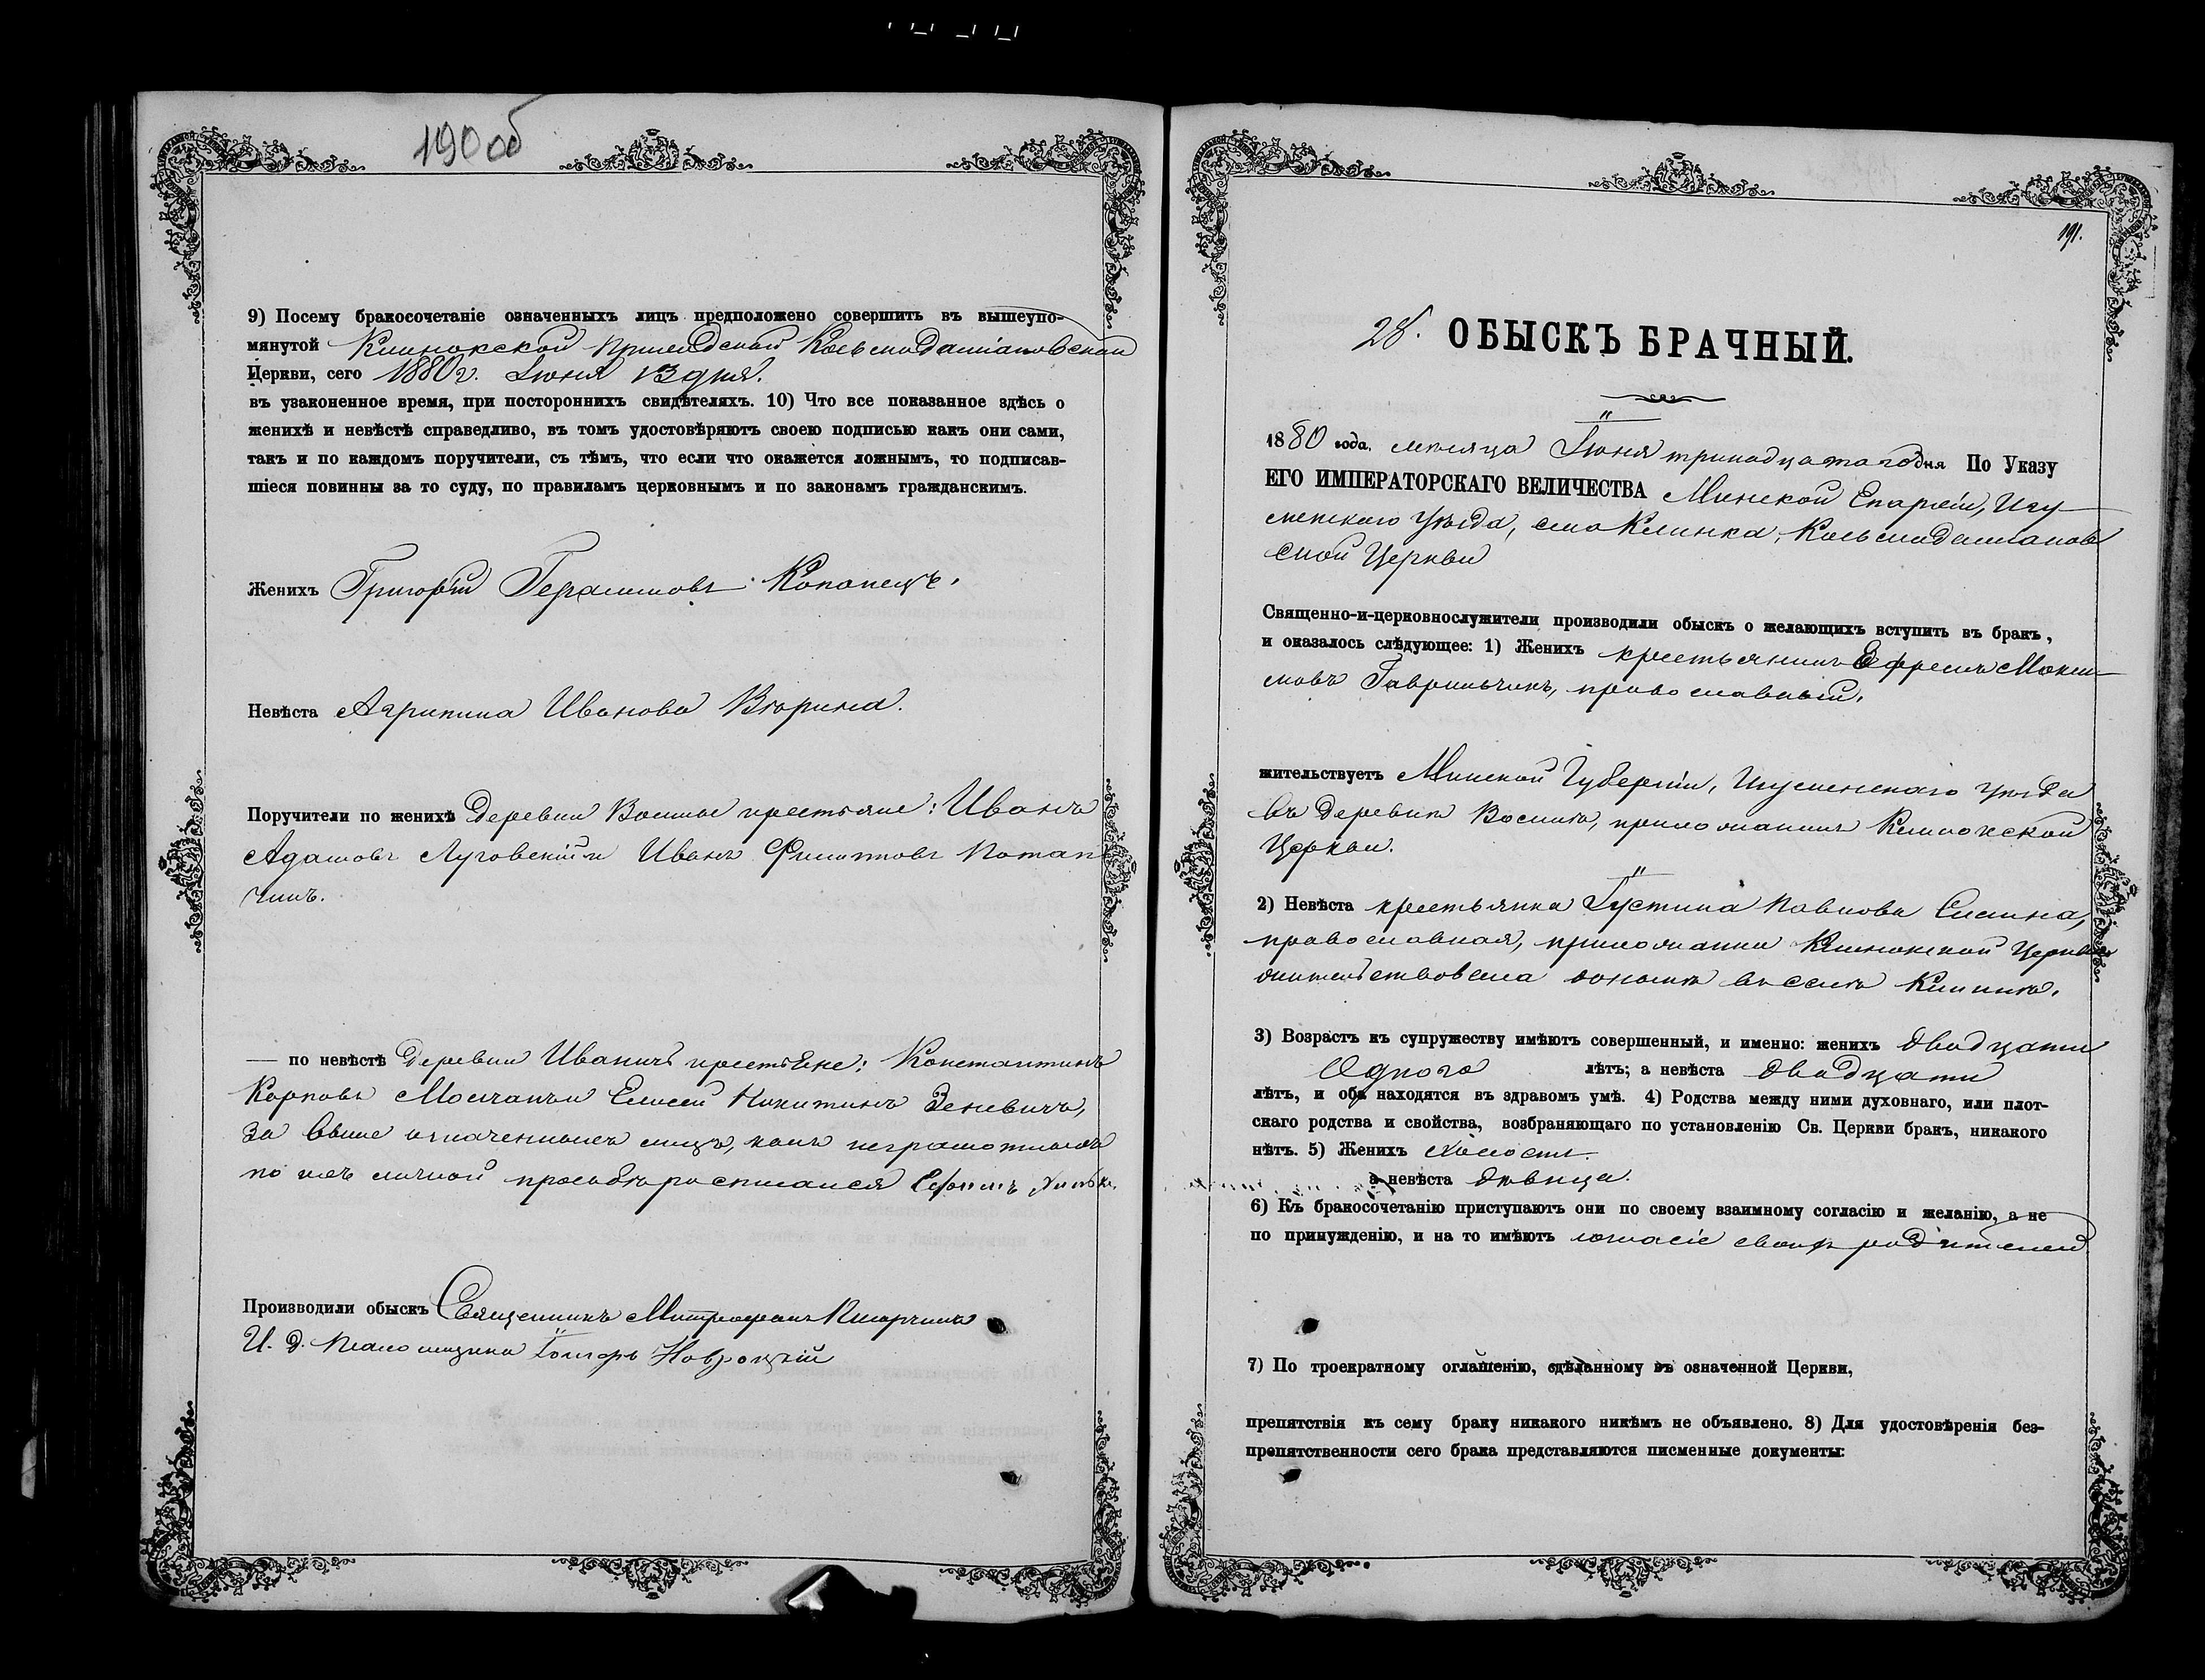 190 об
9) Посему бракосочетаніе означенныхъ лицъ предположено совершить въ вышеупо-
мянутой Клинокской приходской Косьмодаміановской
Церкви, сего 1880 г. Іюня 13 дня.
въ узаконенное время, при постороннихъ свидѣтеляхъ. 10) Что все показанное здѣсь о
женихѣ и невѣстѣ справедливо, въ томъ удостовѣряютъ своею подписью какъ они сами,
такъ и по каждомъ поручители, съ тѣмъ, что если что окажется ложнымъ, то подписав-
шіеся повинны за то суду, по правиламъ церковнымъ и по законамъ гражданскимъ.
Женихъ Григорій Герасимовъ Копопецъ.
Невѣста Агрипина Иванова Вюрина.
Поручители по женихѣ деревни Восишъ крестьяне: Иванъ
Адамовъ Луговскій и Иванъ Филиповъ Потап-
чикъ.
— по невѣстѣ деревни Иваничъ крестьяне: Константинъ
Карповъ Молчанъ и Елисей Никитинъ Зеневичъ,
За выше означенныхъ лицъ, какъ неграмотныхъ
по ихъ личной просьбѣ росписался
Производили обыскъ Священникъ Митрофанъ
И. д. псаломщика Навроцкій
191.
28. ОБЫСКЪ БРАЧНЫЙ.
1880 года, мѣсяца Іюня тринадцатаго дня По Указу
ЕГО ИМПЕРАТОРСКАГО ВЕЛИЧЕСТВА Минской Епархіи, Игу-
менскаго уѣзда, села Клинка, Косьмодаміанов
ской Церкви
Священно-и-церковнослужители производили обыскъ о желающихъ вступить въ бракъ,
и оказалось слѣдующее: 1) Женихъ крестьянинъ Ефремъ Макси-
мовъ Гаврильчикъ, православный,
жительствуетъ Минской Губерніи, Игуменскаго уѣзда
въ деревнѣ прихожанинъ Клинокской
Церкви.
2) Невѣста крестьянка Іустина Павлова
православная, прихожанка Клинокской Церкви
жительствовала донынѣ въ селѣ Клинкѣ.
3) Возрастъ къ супружеству имѣютъ совершенный, и именно: женихъ двадцати
Одного лѣтъ; а невѣста двадцати
лѣтъ, и оба находятся въ здравомъ умѣ. 4) Родства между ними духовнаго, или плот-
скаго родства и свойства, возбраняющаго по установленію Св. Церкви бракъ, никакого
нѣтъ. 5) Женихъ холостъ
а невѣста дѣвица.
6) Къ бракосочетанію приступаютъ они по своему взаимному согласію и желанію, а не
по принужденію, и на то имѣютъ согласіе своихъ родителей
7) По троекратному оглашенію, сдѣланному въ означенной Церкви,
препятствія къ сему браку никакого никѣмъ не объявлено. 8) Для удостовѣренія без-
препятственности сего брака представляются писменные документы: